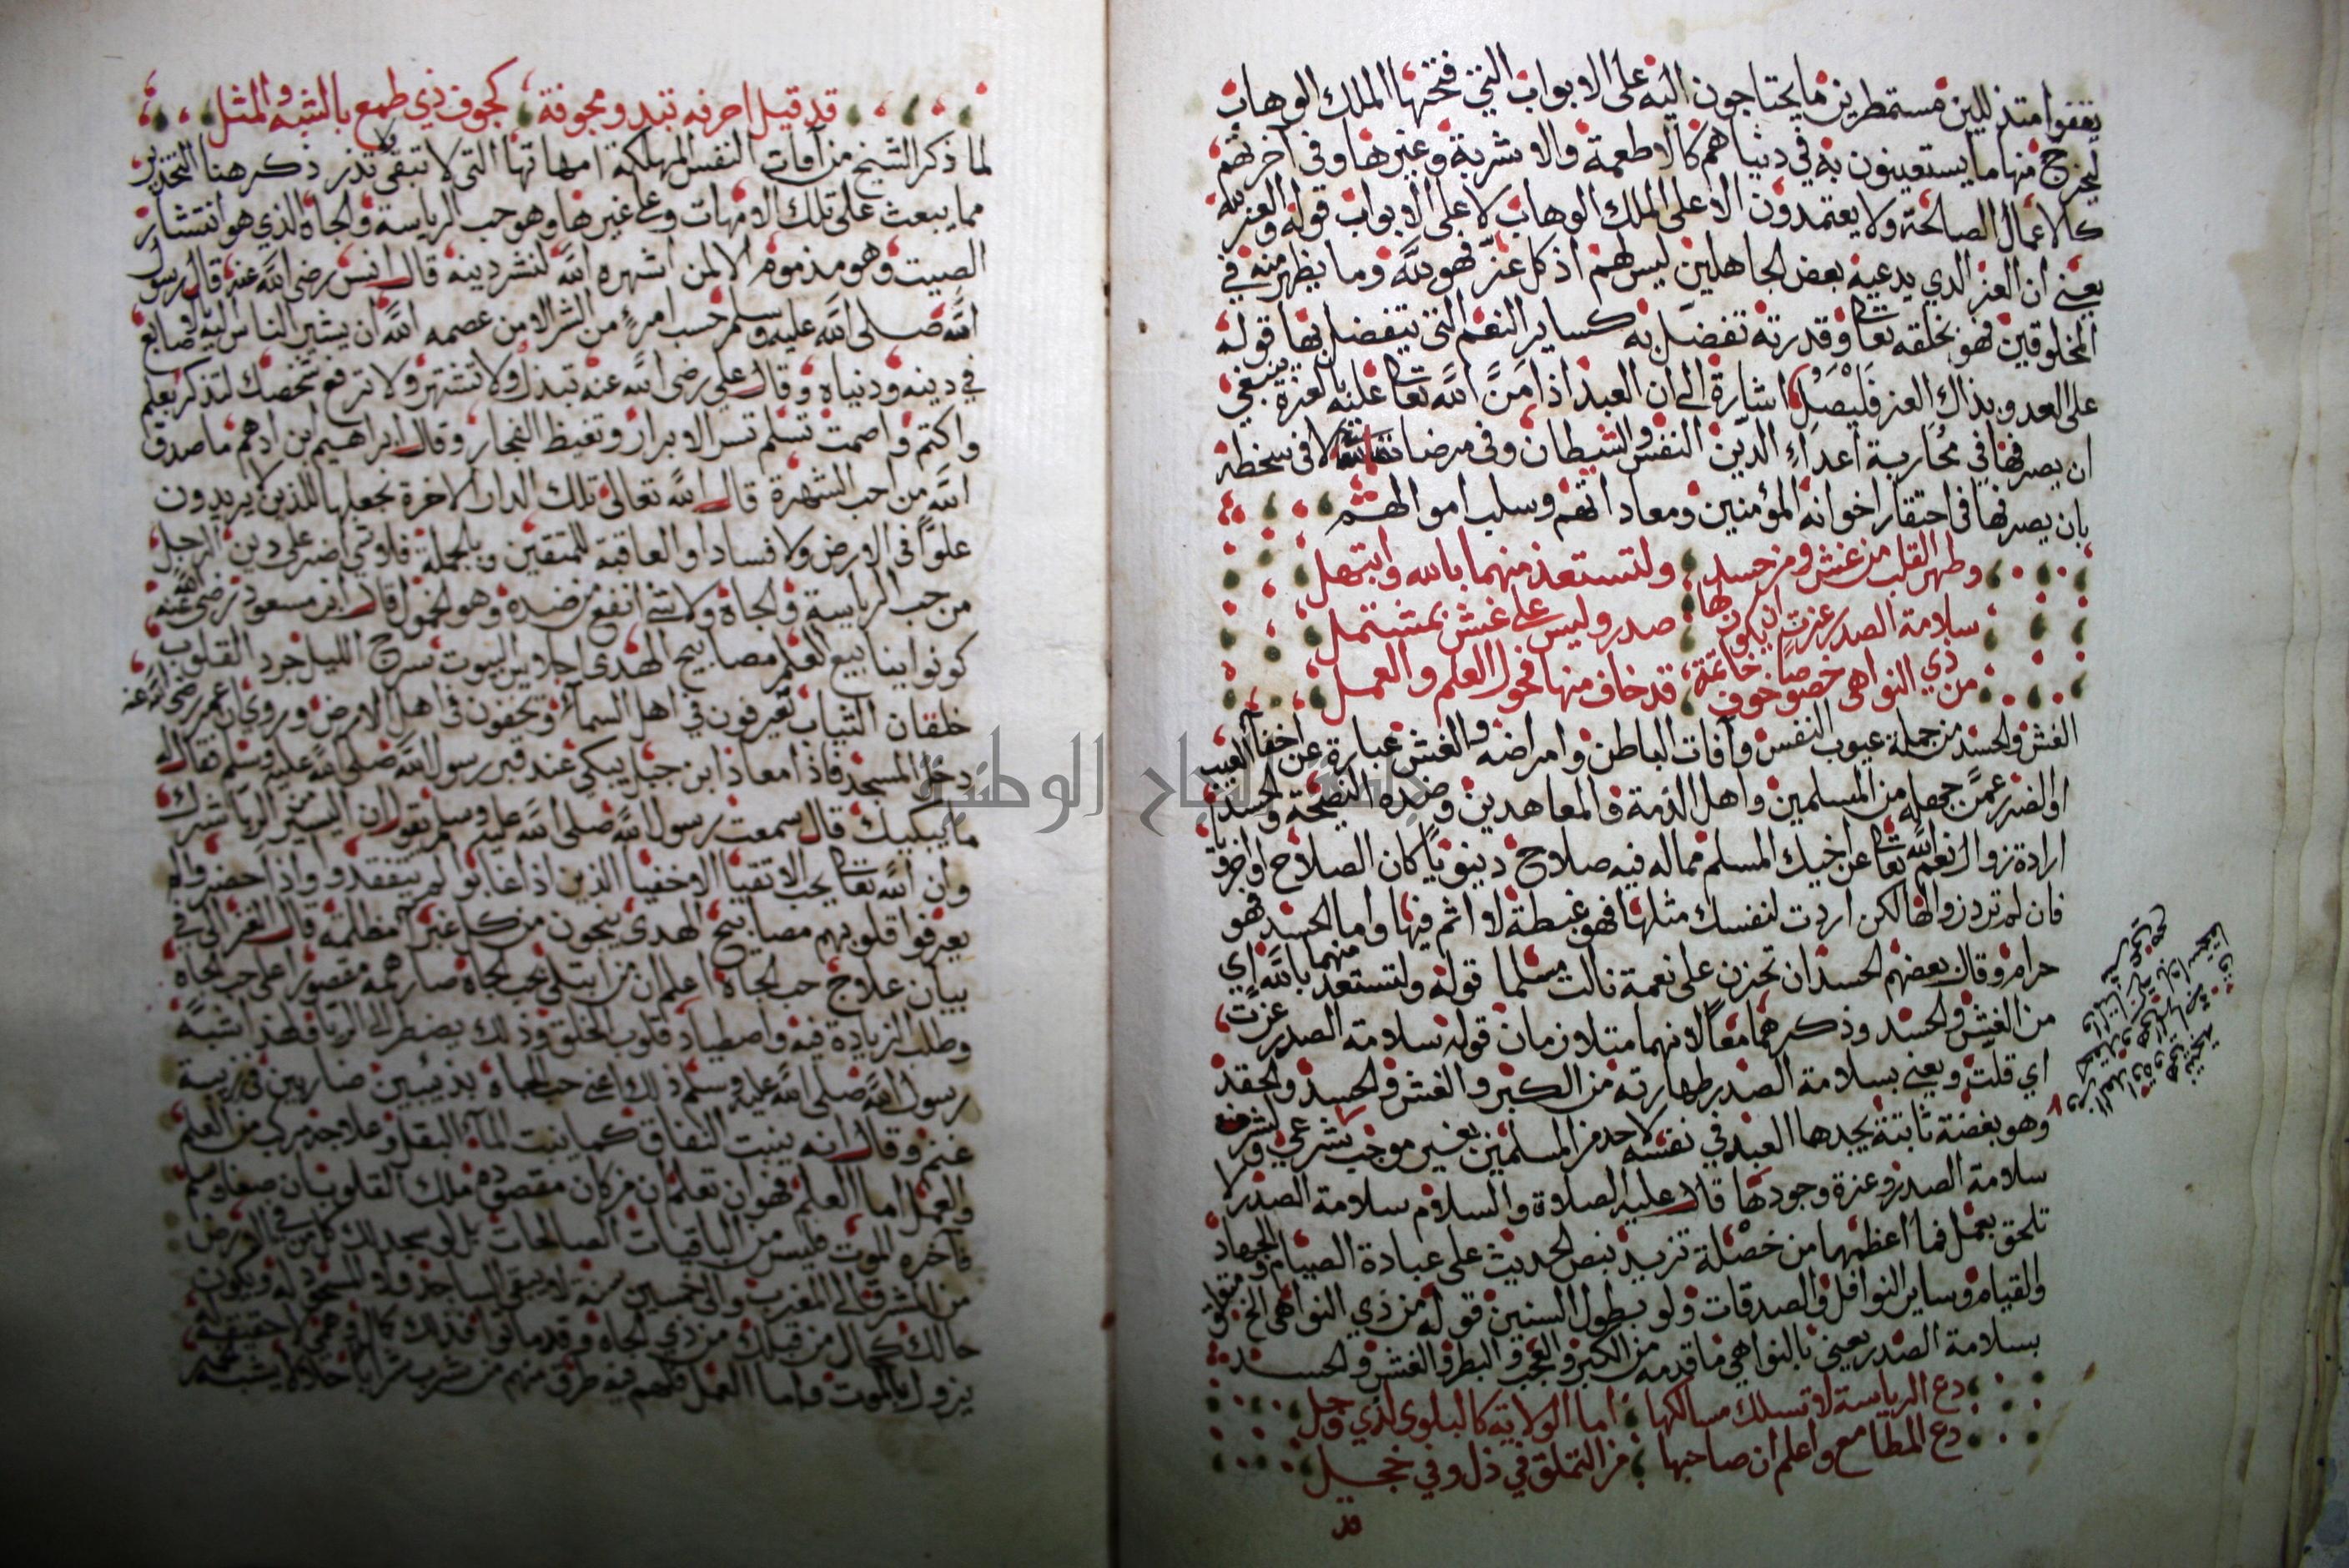 يقفوا متذللين مستمطرين ما يحتاجون اليه على الابواب التي فتحتها الملك الوهاب
ليخرج منها ما يستعينون به في دنياهم كالاطعمة والاشربة وغيرها وفي آخرتهم
كالاعمال الصالحة ولا يعتمدون الا على الملك الوهاب لا على الابواب قوله والعز لله
يعني ان العز الذي يدعيه بعض الجاهلين ليس لهم اذ كل عز فهو لله وما يظهر منه في
المخلوقين فهو بخلقه تعالى وقدرته تفضل به كساير النعم التي يتفضل بها قوله
على العدو بذاك العز فليصل اشارة الى ان العبد اذا من الله تعالى عليه بالعزة ينبغي
ان يصرفها في محاربة اعداء الدين النفس والشيطان وفي مرضاته لا في سخطه
بان يصرفها في احتقار اخوانه المؤمنين ومعاداتهم وسلب اموالهم
وطهر القلب من غش ومن حسد ولتستعذ منهما بالله وابتهل
سلامة الصدر عزت ان يكون لها صدر وليس على غش بمشتمل
من ذي النواهي خصوصا خوف خاتمة قد خاف منها فحول العلم والعمل
الغش والحسد من جملة عيوب النفس وآفات الباطن وامراضه والغش عبارة عن اخفا العيب
او الضرر عمن جهله من المسلمين واهل الذمة والمعاهدين وضده النصيحة والحسد
ارادة زوال نعم الله تعالى عن اخيك المسلم مما له فيه صلاح دينويا كان الصلاح او اخرويا
فان لم ترد زوالها لكن اردت لنفسك مثلها فهو غبطة لا اثم فيها واما الحسد فهو
حرام وقال بعضهم الحسد ان تحزن على نعمة نالت مسلما قوله ولتستعذ منهما بالله اي
من الغش والحسد وذكرهما معا لانهما متلازمان قوله سلامة الصدر عزت
اي قلت ويعني بسلامة الصدر طهارته من الكبر والغش والحسد والحقد
وهو بغضة ثابتة يجدها العبد في نفسه لاحد من المسلمين بغير موجب شرعي ولشرف
سلامة الصدر وعزة وجودها قال عليه الصلاة والسلام سلامة الصدر لا
تلحق بعمل فما اعظمها من خصلة تزيد بنص الحديث على عبادة الصيام والجهاد
والقيام وساير النوافل والصدقات ولو بطول السنين قوله من ذي النواهي الخ
بسلامة الصدر يعني بالنواهي ما قدمه من الكبر والعجب والبطر والغش والحسد
دع الرياسة لا تسلك مسالكها اما الولاية كالبلوى لذي وجل
دع المطامع واعلم ان صاحبها من التملق في ذل وفي خجل
قد
قد قيل احرفه تبدو مجوفة كجوف ذي طمع بالشبه والمثل
لما ذكر الشيخ من آفات النفس المهلكة امهاتها التي لا تبقي ولا تذر ذكر هنا التحذير
مما يبعث على تلك الامهات وعلى غيرها وهو حب الرياسة والجاه الذي هو انتشار
الصيت وهو مذموم الا لمن اشهره الله لنشر دينه قال انس رضى الله عنه قال رسول
الله صلى الله عليه وسلم حسب امرئ من الشر الا من عصمه الله ان يشير الناس اليه بالاصابع
في دينه ودنياه وقال علي رضى الله عنه تبذل ولا تشتهر ولا ترفع شخصك لتذكر بعلم
واكتم واصمت تسلم تسر الابرار وتغيظ الفجار وقال ابراهيم ابن ادهم ما صدق
الله من احب الشهرة قال الله تعالى تلك الدار الاخرة نجعلها للذين لا يريدون
علوا في الارض ولا فسادا والعاقبة للمتقين وبالجملة فلا شي اضر على دين الرجل
من حب الرياسة والجاه ولا شئ انفع من ضده وهو الخمول قال ابن مسعود رضى الله عنه
كونوا ينابيع العلم مصابيح الهدى احلاس البيوت سرج الليل جرد القلوب
خلقان الثياب تعرفون في اهل السماء وتخفون في اهل الارض وروي ان عمر رضى الله عنه
دخل المسجد فاذا معاذ ابن جبل يبكي عند قبر رسول الله صلى الله عليه وسلم فقال له
ما يبكيك قال سمعت رسول الله صلى الله عليه وسلم يقول ان اليسير من الريا شرك
وان الله تعالى يحب الاتقيا الاخفيا الذين اذا غابوا لم يتفقدوا واذا حضروا لم
يعرفوا قلوبهم مصابيح الهدى ينجون من كل غبرا مظلمة قال الغزالي في
بيان علاج حب الجاه اعلم ان من ابتلي بحب الجاه صار همه مقصورا على حب الجاه
وطلب الزيادة فيه واصطياد قلوب الخلق وذلك يضطر الى الريا فلهذا شبه
رسول الله صلى الله عليه وسلم ذلك اعني حب الجاه بذيبين ضاريين في زريبة
غنم وقال انه ينبت النفاق كما ينبت المآء البقل وعلاجه مركب من العلم
والعمل اما العلم فهو ان تعلم ان من كان مقصوده ملك القلوب بان صفا وسلم
فآخره الموت فليس من الباقيات الصالحات بل لو سجد لك كل من في الارض
من المشرق الى المغرب والى خمسين سنة لا يبقى الساجد ولا المسجود له ويكون
حالك كحال من قبلك من ذي الجاه وقد ماتوا فذلك كمال وهمي لا حقيقة له
يزول بالموت واما العمل فلهم فيه طرق منهم من شرب شرابا حلالا يشبه
جامعة النجاح الوطنية